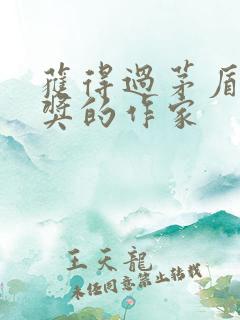 獲得過茅盾
獎的作家
王天龍
未经同意禁止转载